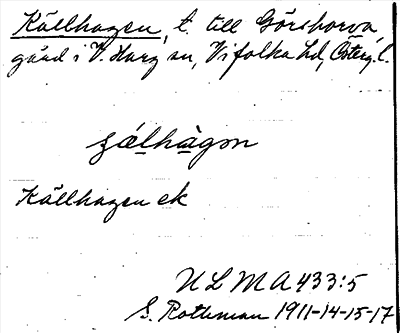 Källhagen, t. till Görshorva,
gård i V. Harg sn, Vifolka hd, Österg. l.
ʒǽlhàgən
Källhagen ek
ULMA 433:5
S. Rothman 1911-14-15-17